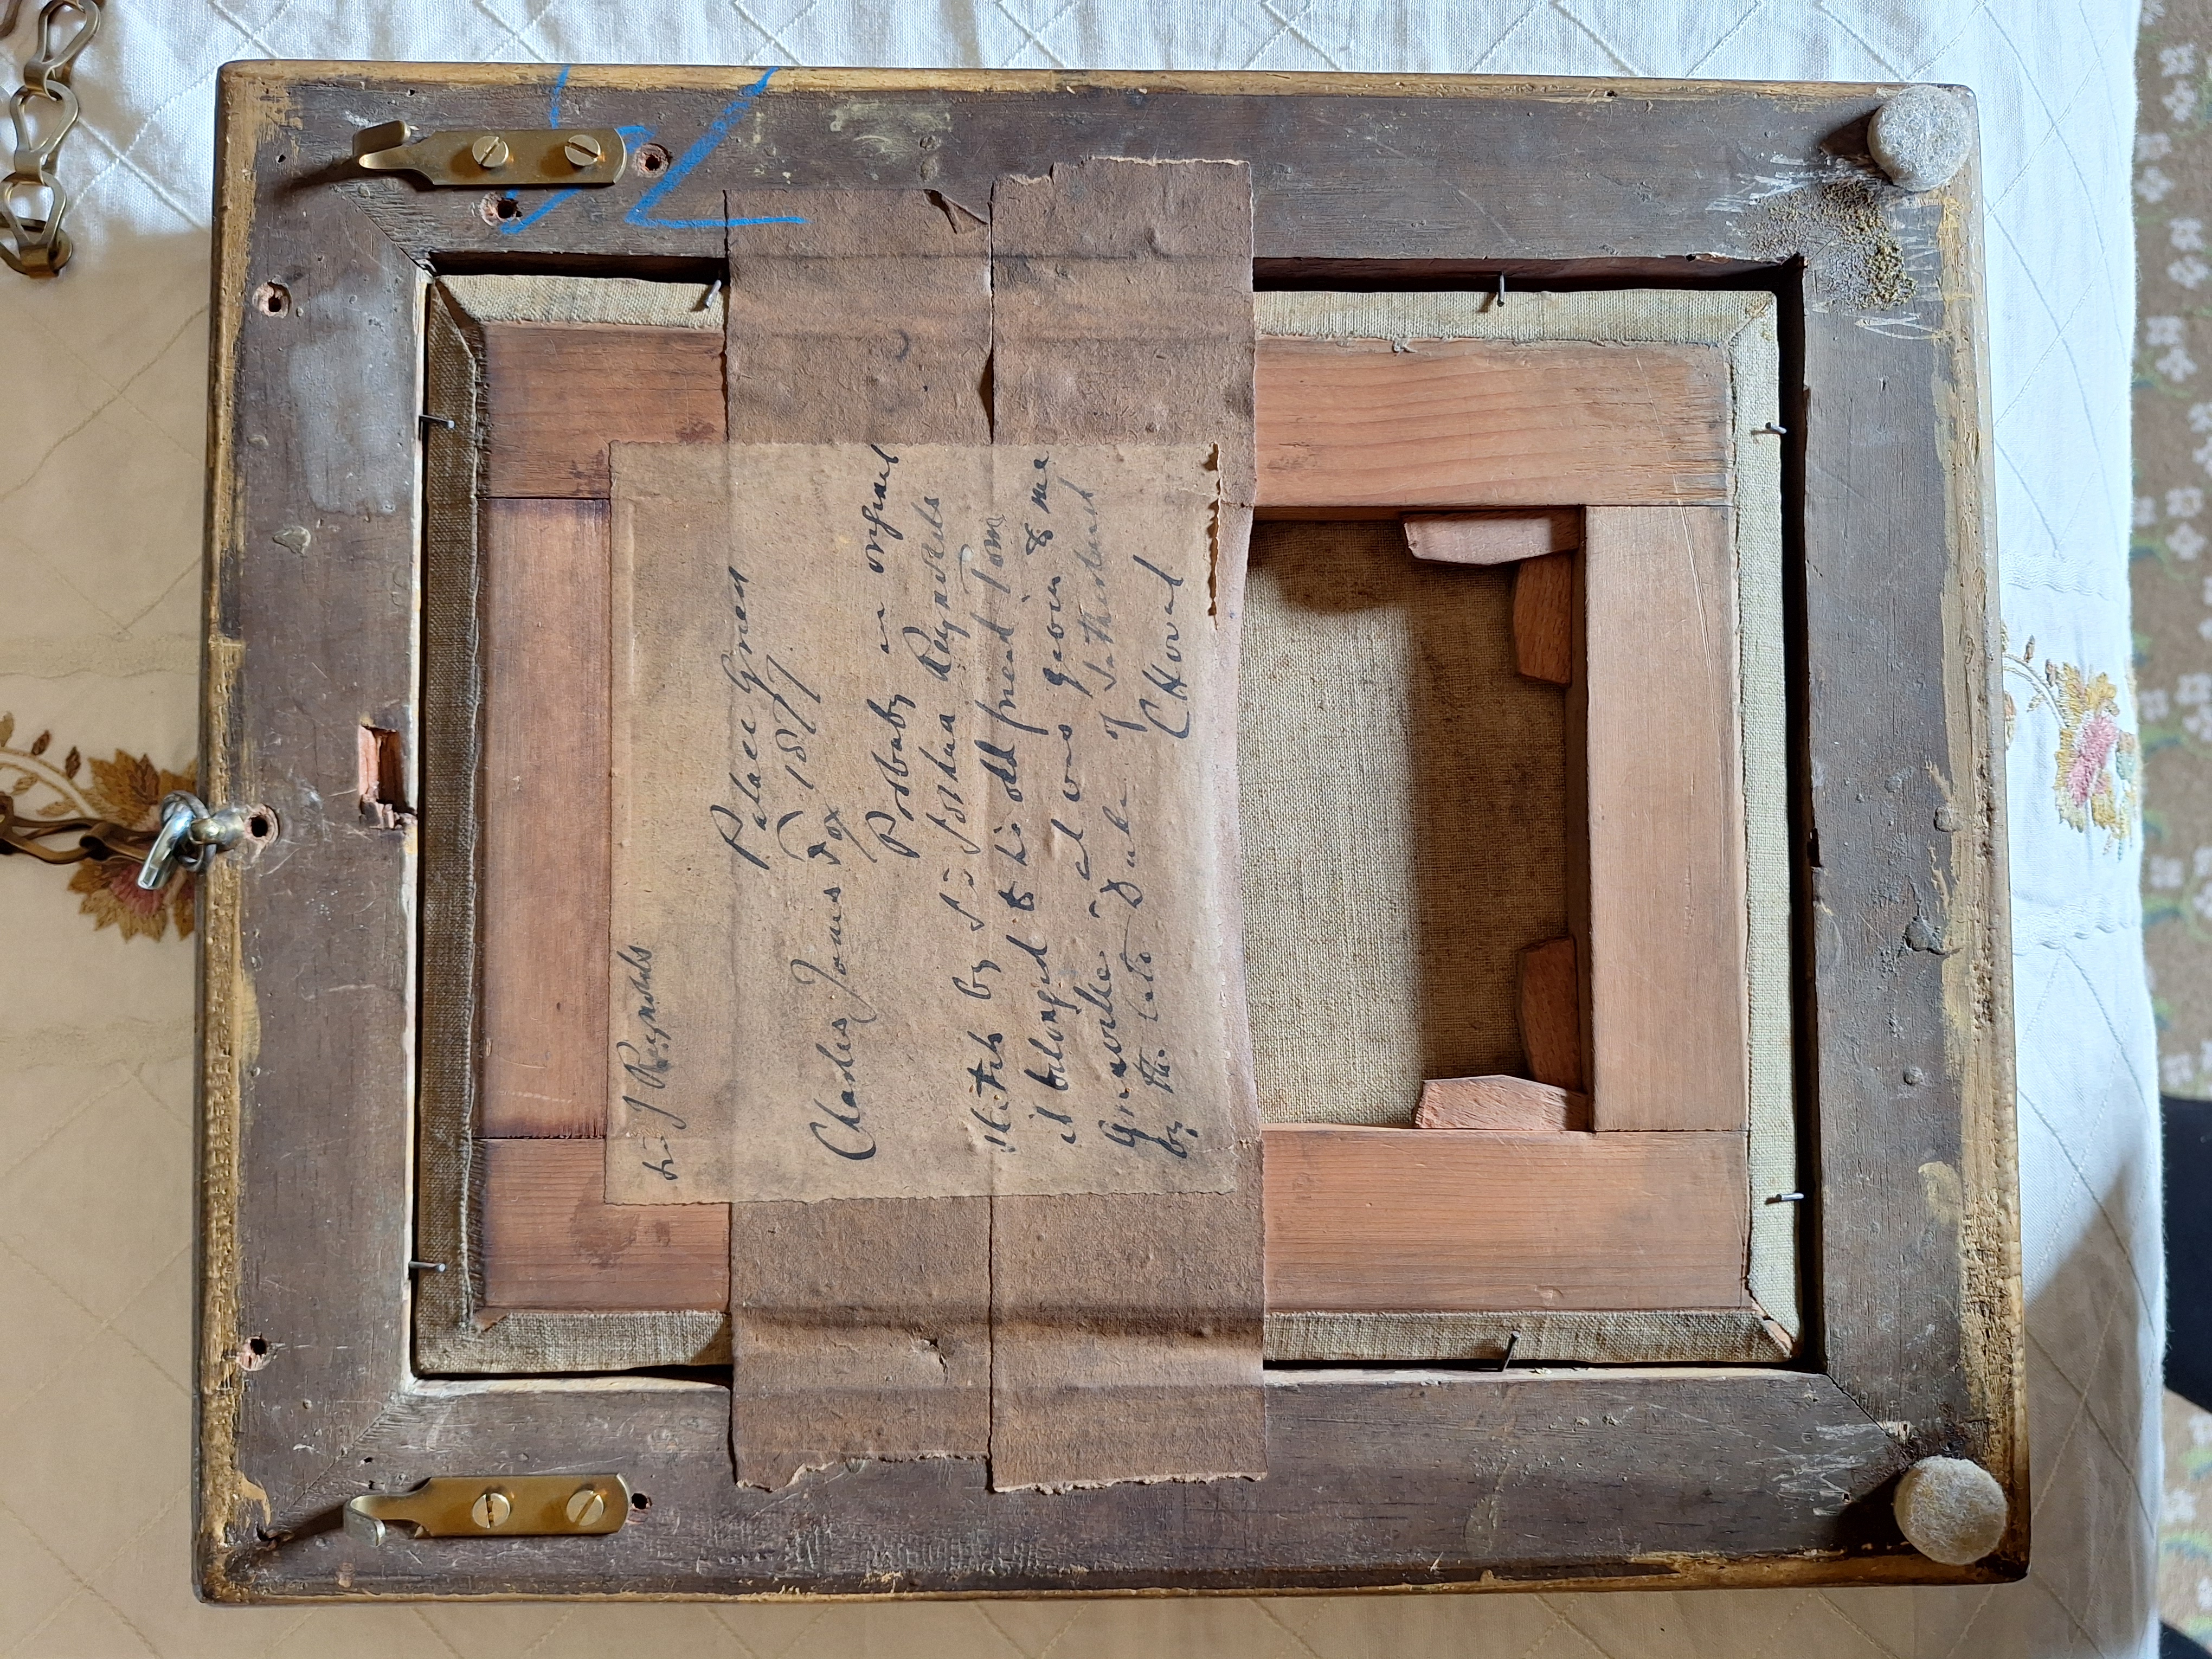 Sir J Reynolds
Palace Green
1877
Charles James Fox
Probably an original
sketch by Sir Joshua Reynolds
it belonged to his old friend Tom
Grenville and was given to me
by the late Duke of Sutherland
C Howard
52